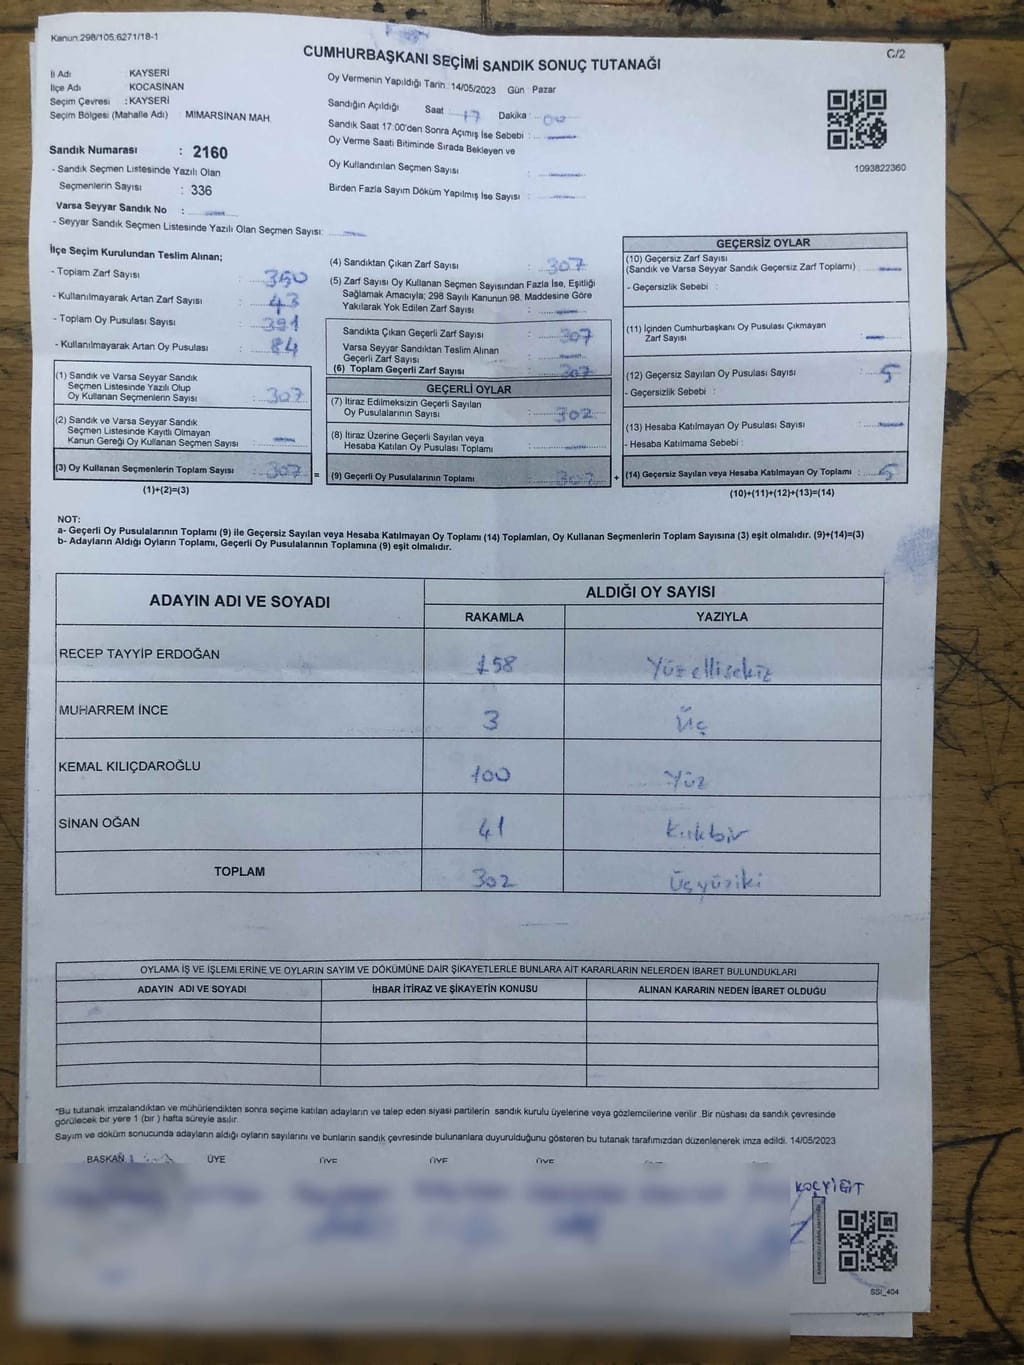 Kanun:298/105,6271/18-1
C/2
CUMHURBAŞKANI SEÇİMİ SANDIK SONUÇ TUTANAĞI
İl Adı : KAYSERİ
İlçe Adı : KOCASİNAN
Seçim Çevresi : KAYSERİ
Seçim Bölgesi (Mahalle Adı) : MİMARSİNAN MAH.
Oy Vermenin Yapıldığı Tarih : 14/05/2023 Gün : Pazar
Sandığın Açıldığı Saat : 17 Dakika : 00
Sandık Saat 17:00'den Sonra Açımış İse Sebebi :
Oy Verme Saati Bitiminde Sırada Bekleyen ve
Oy Kullandırılan Seçmen Sayısı :
Birden Fazla Sayım Döküm Yapılmış İse Sayısı :
1093822360
Sandık Numarası : 2160
- Sandık Seçmen Listesinde Yazılı Olan
Seçmenlerin Sayısı : 336
Varsa Seyyar Sandık No :
- Seyyar Sandık Seçmen Listesinde Yazılı Olan Seçmen Sayısı:
İlçe Seçim Kurulundan Teslim Alınan;
- Toplam Zarf Sayısı : 350
- Kullanılmayarak Artan Zarf Sayısı : 43
- Toplam Oy Pusulası Sayısı : 391
- Kullanılmayarak Artan Oy Pusulası : 84
(1) Sandık ve Varsa Seyyar Sandık
Seçmen Listesinde Yazılı Olup
Oy Kullanan Seçmenlerin Sayısı : 307
(2) Sandık ve Varsa Seyyar Sandık
Seçmen Listesinde Kayıtlı Olmayan
Kanun Gereği Oy Kullanan Seçmen Sayısı :
(3) Oy Kullanan Seçmenlerin Toplam Sayısı : 307
(1)+(2)=(3)
(4) Sandıktan Çıkan Zarf Sayısı : 307
(5) Zarf Sayısı Oy Kullanan Seçmen Sayısından Fazla İse, Eşitliği
Sağlamak Amacıyla; 298 Sayılı Kanunun 98. Maddesine Göre
Yakılarak Yok Edilen Zarf Sayısı :
Sandıkta Çıkan Geçerli Zarf Sayısı : 307
Varsa Seyyar Sandıktan Teslim Alınan
Geçerli Zarf Sayısı :
(6) Toplam Geçerli Zarf Sayısı : 307
GEÇERLİ OYLAR
(7) İtiraz Edilmeksizin Geçerli Sayılan
Oy Pusulalarının Sayısı : 302
(8) İtiraz Üzerine Geçerli Sayılan veya
Hesaba Katılan Oy Pusulası Toplamı :
= (9) Geçerli Oy Pusulalarının Toplamı : 302
GEÇERSİZ OYLAR
(10) Geçersiz Zarf Sayısı
(Sandık ve Varsa Seyyar Sandık Geçersiz Zarf Toplamı) :
- Geçersizlik Sebebi :
(11) İçinden Cumhurbaşkanı Oy Pusulası Çıkmayan
Zarf Sayısı :
(12) Geçersiz Sayılan Oy Pusulası Sayısı : 5
- Geçersizlik Sebebi :
(13) Hesaba Katılmayan Oy Pusulası Sayısı :
- Hesaba Katılmama Sebebi :
+ (14) Geçersiz Sayılan veya Hesaba Katılmayan Oy Toplamı : 5
(10)+(11)+(12)+(13)=(14)
NOT:
a- Geçerli Oy Pusulalarının Toplamı (9) ile Geçersiz Sayılan veya Hesaba Katılmayan Oy Toplamı (14) Toplamları, Oy Kullanan Seçmenlerin Toplam Sayısına (3) eşit olmalıdır. (9)+(14)=(3)
b- Adayların Aldığı Oyların Toplamı, Geçerli Oy Pusulalarının Toplamına (9) eşit olmalıdır.
ADAYIN ADI VE SOYADI
ALDIĞI OY SAYISI
RAKAMLA YAZIYLA
RECEP TAYYİP ERDOĞAN 158 Yüzellisekiz
MUHARREM İNCE 3 Üç
KEMAL KILIÇDAROĞLU 100 Yüz
SİNAN OĞAN 41 Kırkbir
TOPLAM 302 Üçyüziki
OYLAMA İŞ VE İŞLEMLERİNE VE OYLARIN SAYIM VE DÖKÜMÜNE DAİR ŞİKAYETLERLE BUNLARA AİT KARARLARIN NELERDEN İBARET BULUNDUKLARI
ADAYIN ADI VE SOYADI İHBAR İTİRAZ VE ŞİKAYETİN KONUSU ALINAN KARARIN NEDEN İBARET OLDUĞU
*Bu tutanak imzalandıktan ve mühürlendikten sonra seçime katılan adayların ve talep eden siyasi partilerin sandık kurulu üyelerine veya gözlemcilerine verilir. Bir nüshası da sandık çevresinde
görülecek bir yere 1 (bir) hafta süreyle asılır.
Sayım ve döküm sonucunda adayların aldığı oyların sayılarını ve bunların sandık çevresinde bulunanlara duyurulduğunu gösteren bu tutanak tarafımızdan düzenlenerek imza edildi. 14/05/2023
BAŞKAN ÜYE ÜYE ÜYE ÜYE
KOÇYİĞİT
SSI_404